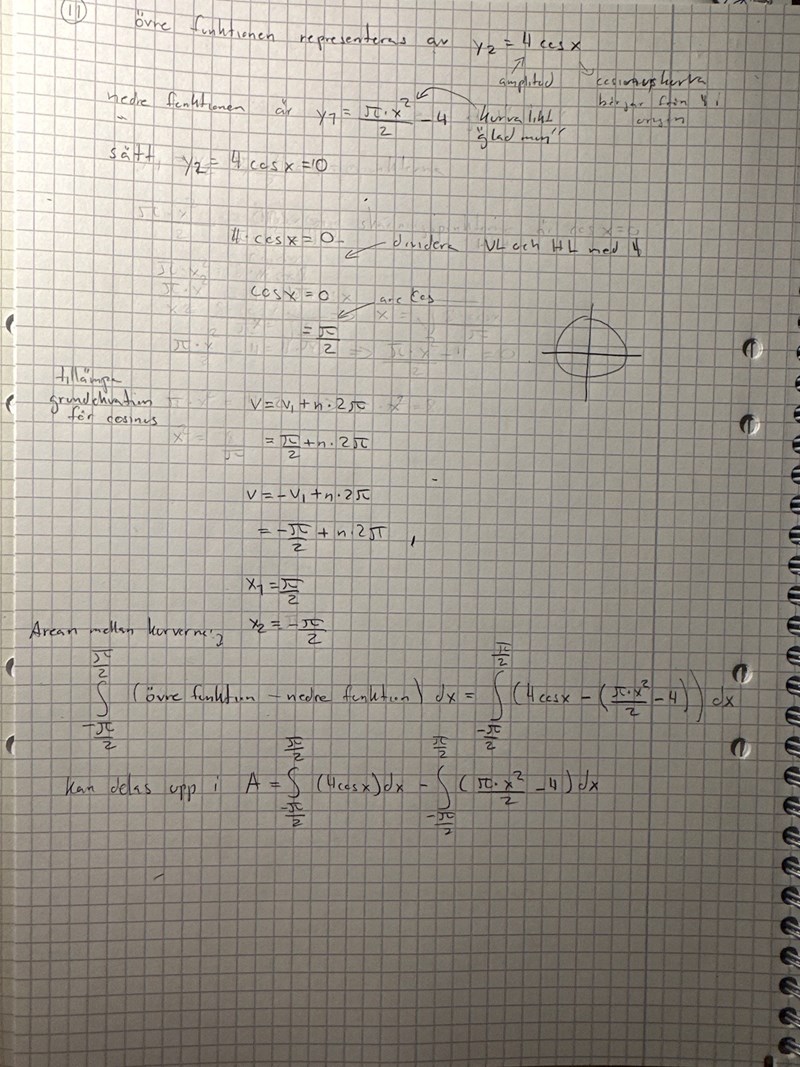 11
övre funktionen representeras av y₂ = 4 cos x
amplitud
cosinuskurva
börjar från 4 i
origo
nedre funktionen är y₁ = π·x²/2 - 4
kurva likt
"glad mun"
sätt, y₂ = 4 cos x = 0
4·cos x = 0 dividera VL och HL med 4
cos x = 0 arc cos
= π/2
tillämpa
grundekvation
för cosinus
V = V₁ + n·2π
= π/2 + n·2π
V = -V₁ + n·2π
= -π/2 + n·2π,
x₁ = π/2
x₂ = -π/2
Arean mellan kurvorna;
∫_{-π/2}^{π/2} (övre funktion - nedre funktion) dx = ∫_{-π/2}^{π/2} (4cosx - (π·x²/2 - 4)) dx
kan delas upp i A = ∫_{-π/2}^{π/2} (4cosx)dx - ∫_{-π/2}^{π/2} (π·x²/2 - 4)dx